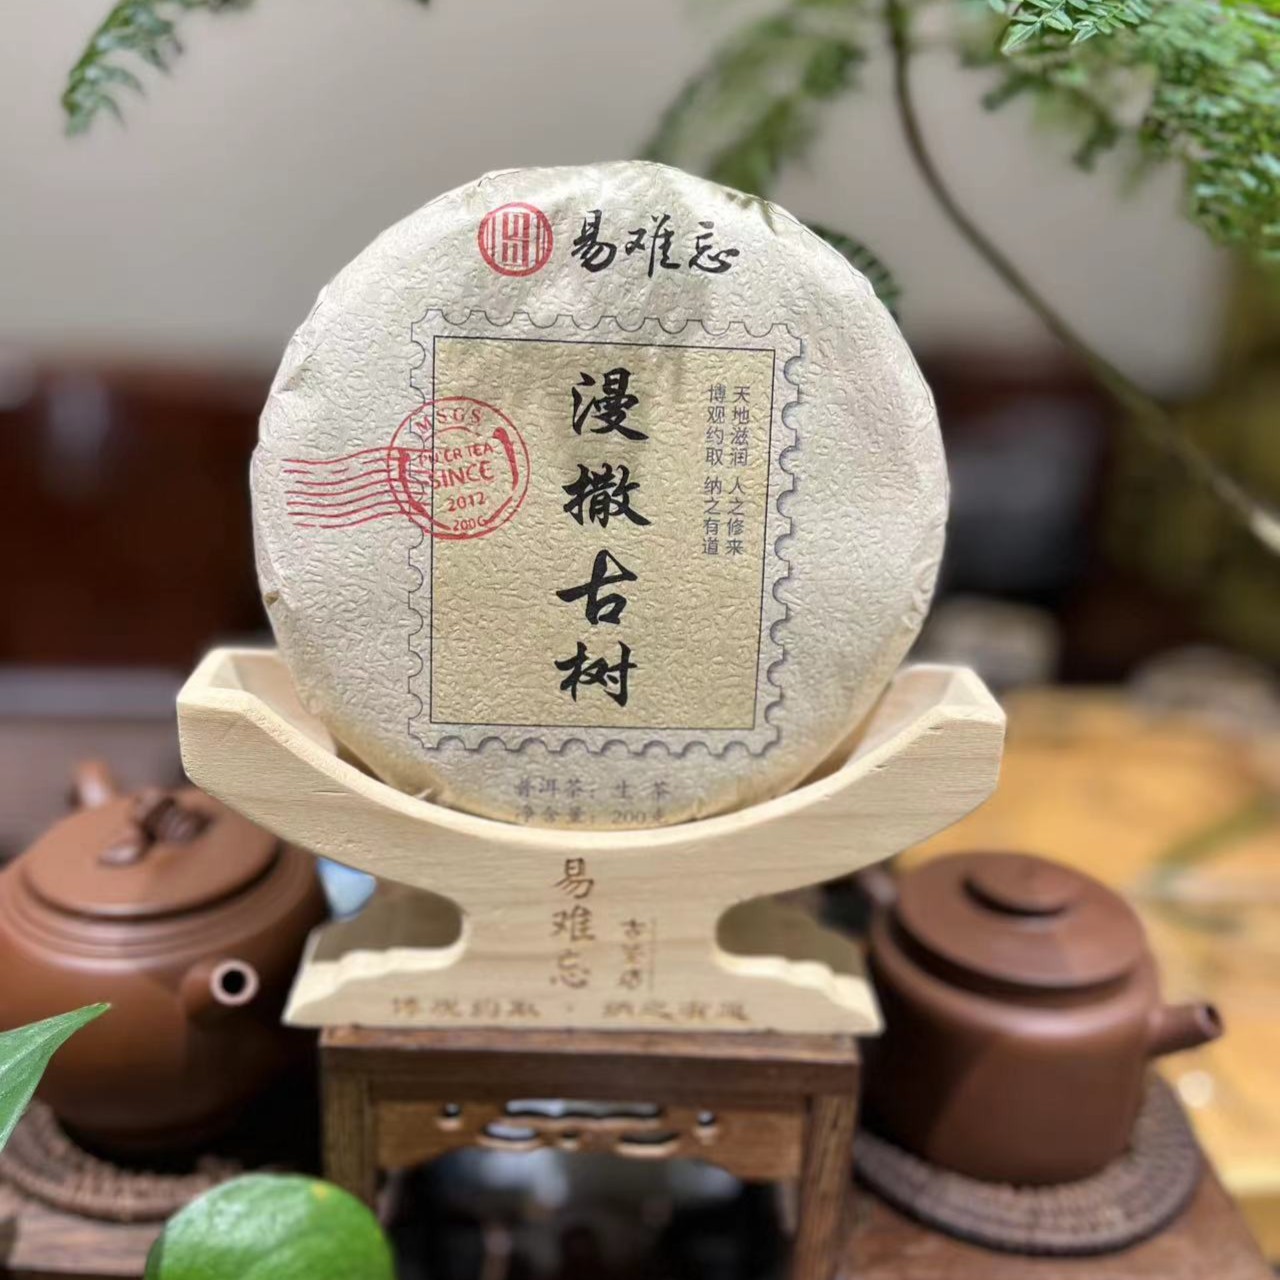 易难忘
漫撒古树
天地滋润 人之修来
博观约取 纳之有道
MSGS
PU'ER TEA
SINCE
2012
200G
普洱茶：生 茶
净含量：200克
易难忘
古茶店
博观约取 · 纳之有道